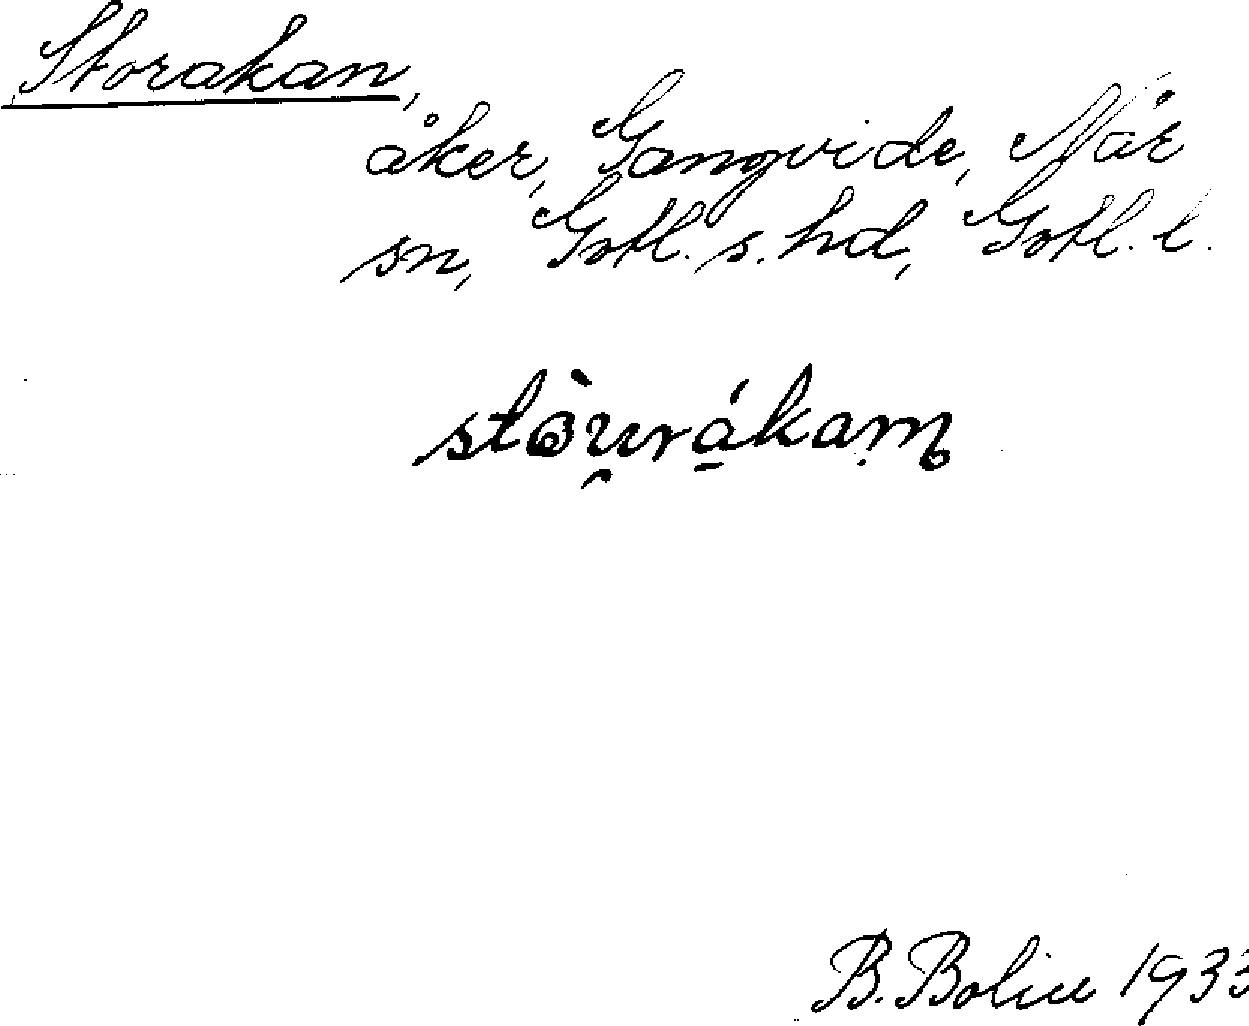 Storakan,
åker, Gangvide, När
sn, Gotl. s. hd, Gotl. l.
stòu̯rá̱kam
B. Bolin 1933